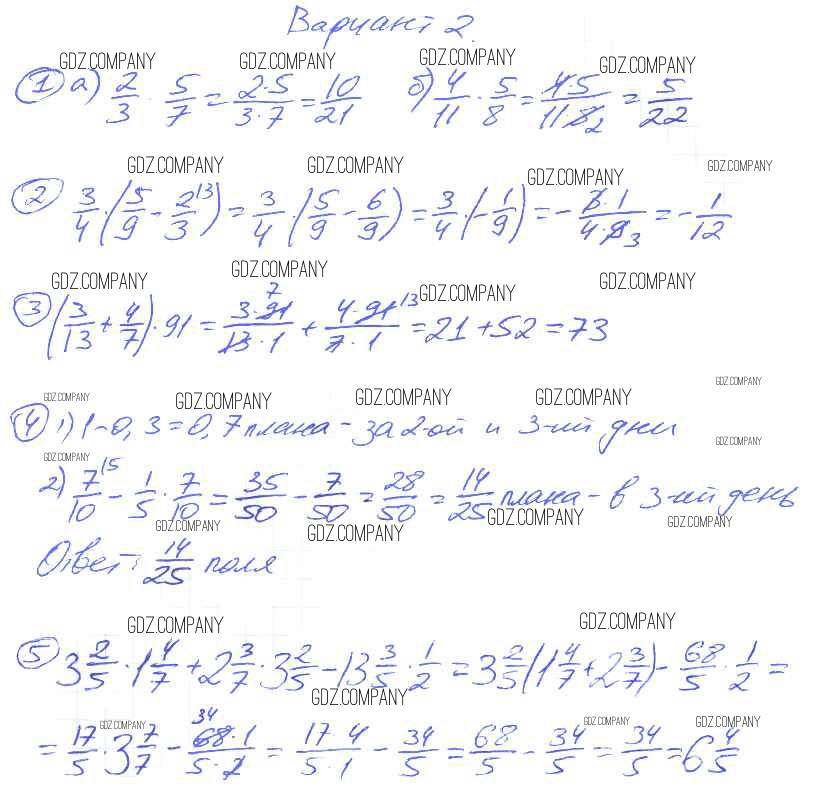 Вариант 2.
GDZ.COMPANY GDZ.COMPANY GDZ.COMPANY GDZ.COMPANY
① а) 2/3 · 5/7 = 2·5/3·7 = 10/21 б) 4/11 · 5/8 = 4·5/11·8 2 = 5/22
GDZ.COMPANY GDZ.COMPANY GDZ.COMPANY GDZ.COMPANY
② 3/4 · (5/9 - 2/3 |3) = 3/4 · (5/9 - 6/9) = 3/4 · (-1/9) = - 3·1/4·9 3 = - 1/12
GDZ.COMPANY GDZ.COMPANY GDZ.COMPANY GDZ.COMPANY
③ (3/13 + 4/7) · 91 = 3·91 7/13·1 + 4·91 13/7·1 = 21 + 52 = 73
GDZ.COMPANY GDZ.COMPANY GDZ.COMPANY GDZ.COMPANY GDZ.COMPANY
④ 1) 1-0,3=0,7 плана - за 2-ой и 3-ий дни
GDZ.COMPANY GDZ.COMPANY
2) 7/10 |5 - 1/5 · 7/10 = 35/50 - 7/50 = 28/50 = 14/25 плана - в 3-ий день
GDZ.COMPANY GDZ.COMPANY GDZ.COMPANY GDZ.COMPANY
Ответ: 14/25 поля
GDZ.COMPANY GDZ.COMPANY
⑤ 3 2/5 · 1 4/7 + 2 3/7 · 3 2/5 - 13 3/5 · 1/2 = 3 2/5 (1 4/7 + 2 3/7) - 68/5 · 1/2 =
GDZ.COMPANY GDZ.COMPANY GDZ.COMPANY GDZ.COMPANY
= 17/5 · 3 7/7 - 34 68·1/5·2 = 17 4/5·1 - 34/5 = 68/5 - 34/5 = 34/5 = 6 4/5